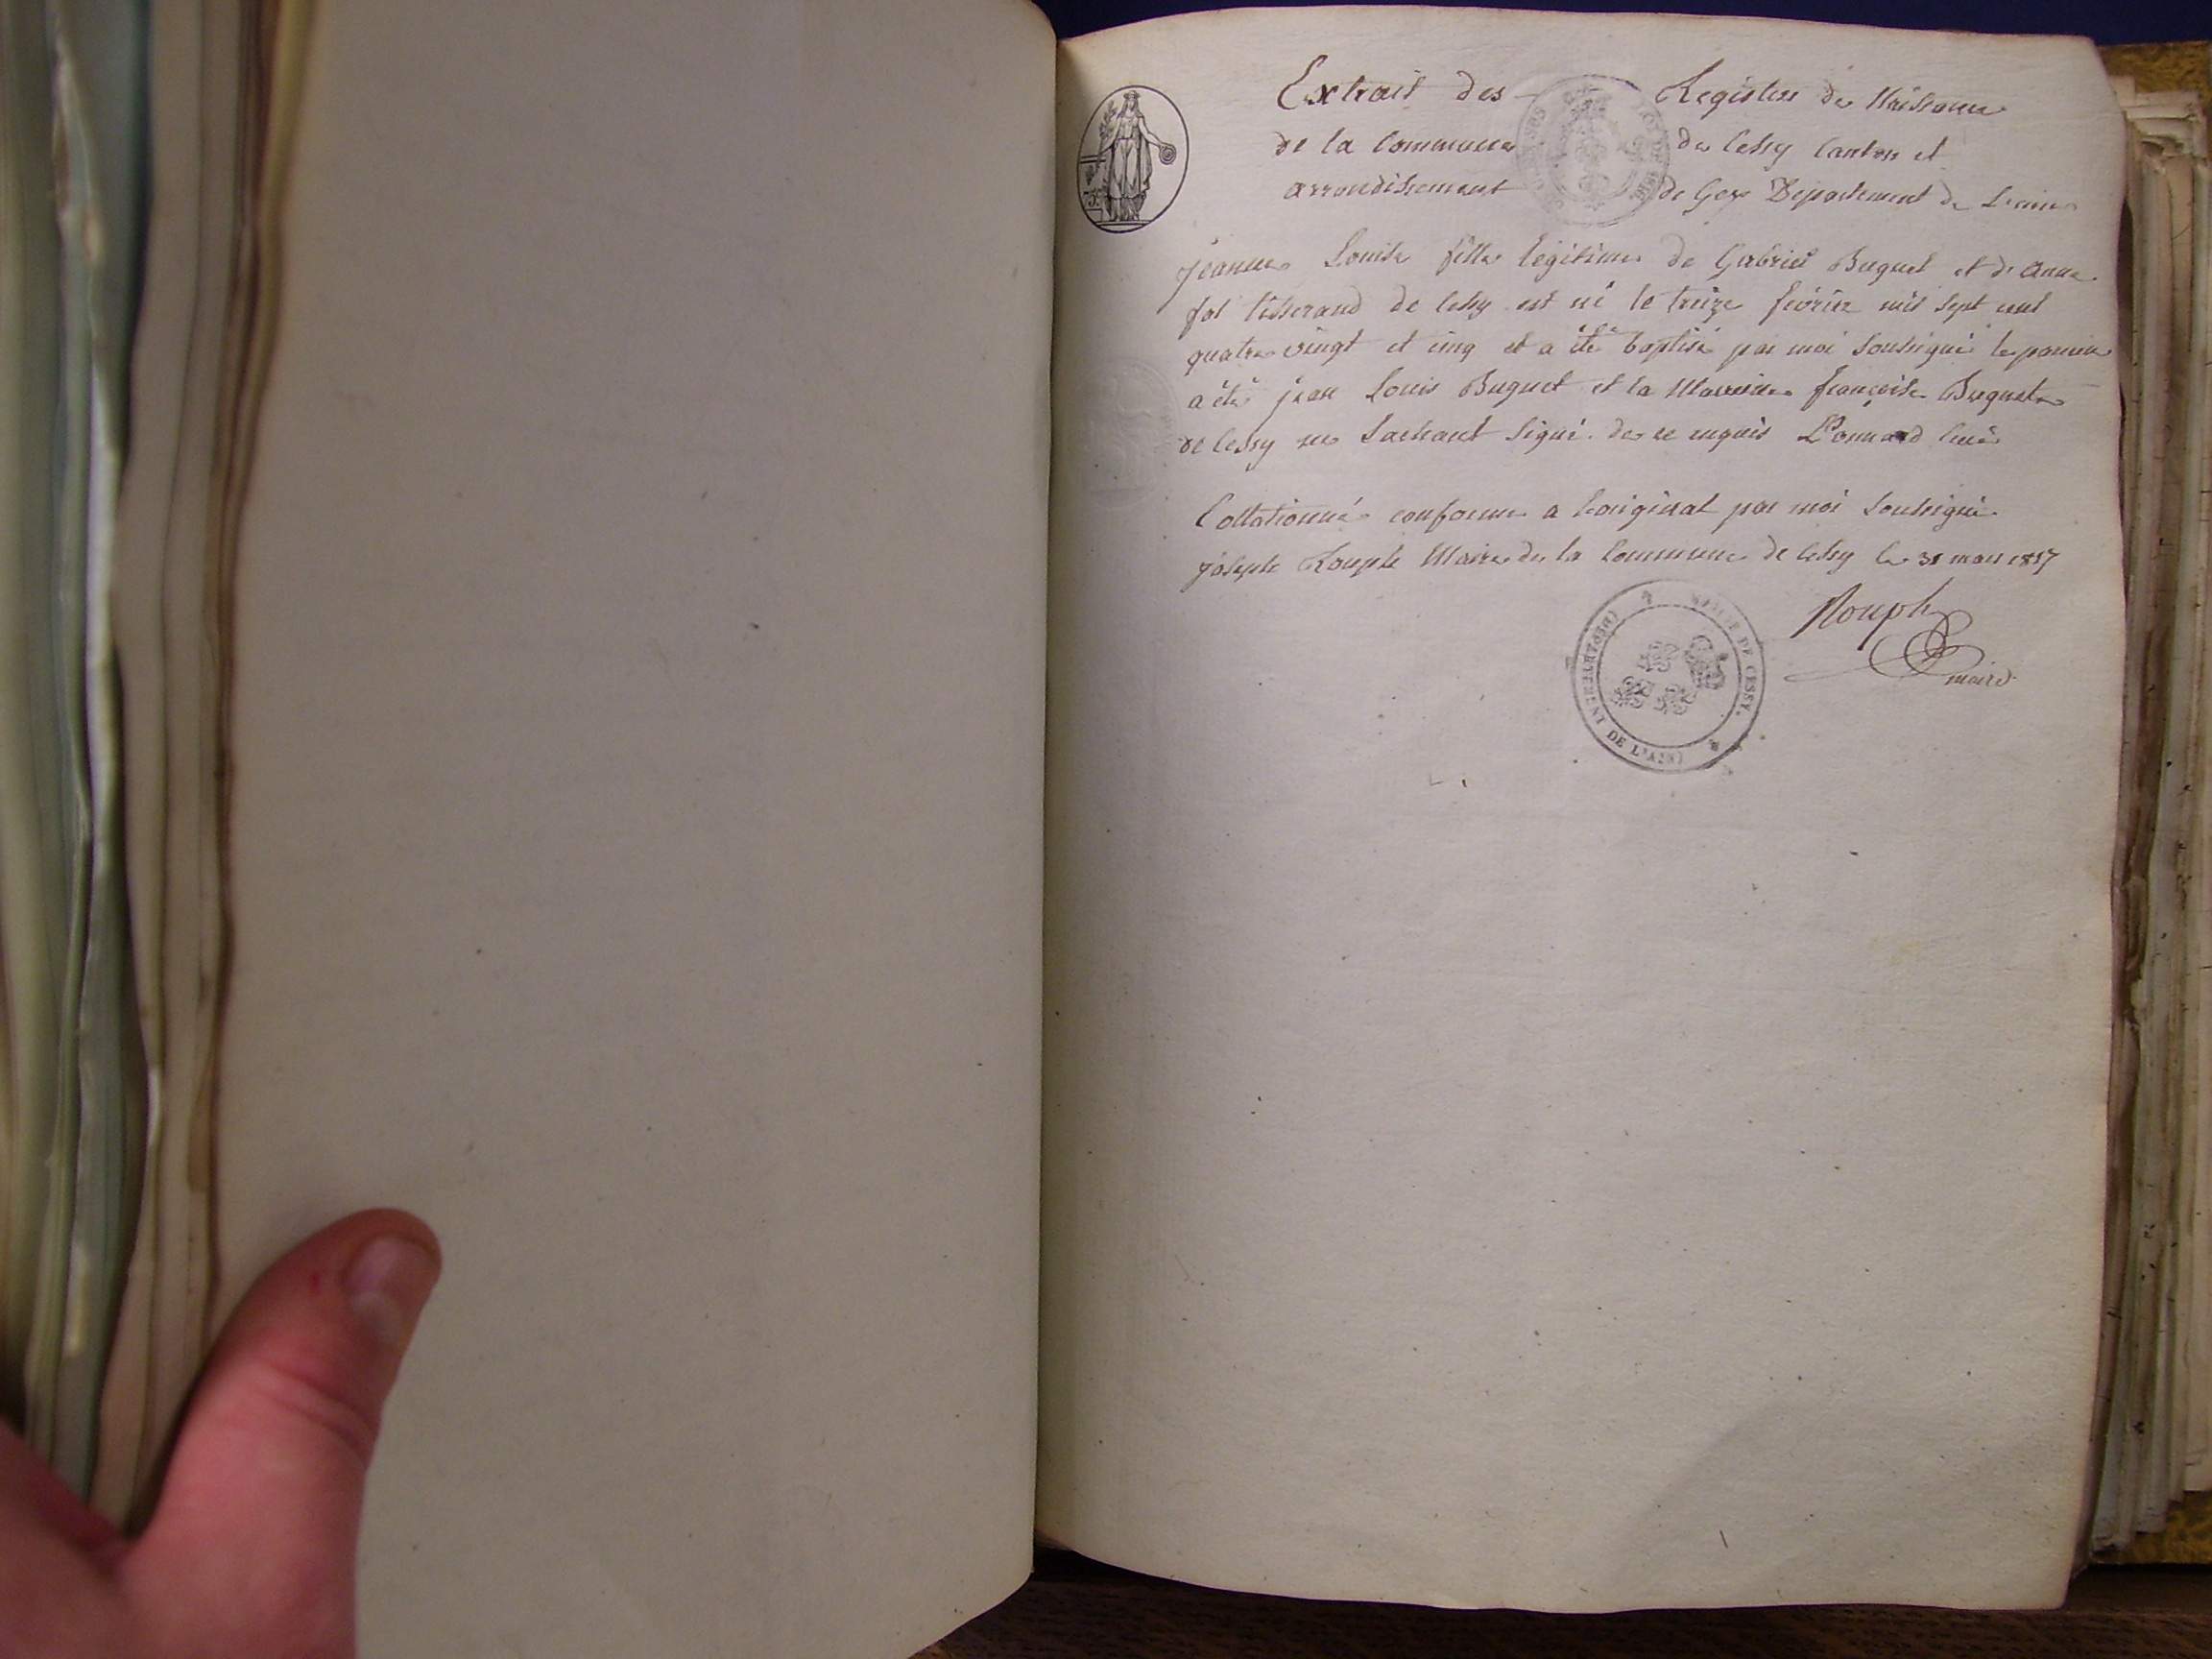 Extrait des Registres de Naissance
de la Commune de Cessy Canton et
arrondissement de Gex Département de L'ain
jeanne Louise fille légitime de Gabriel Buguet et d'anne
fol tisserand de Cessy est né le treize fevrier mil sept cent
quatre vingt et cinq et a été baptisé par moi soussigné le parrain
a été jean Louis Buguet et la Marraine françoise Buguet
de Cessy ne sachant signé de ce enquis Curé
Collationné conforme a L'original par moi soussigné
joseph Rouph Maire de la Commune de Cessy le 31 mars 1817
Rouph
maire
MAIRIE DE CESSY.
(DÉPARTEMENT DE L'AIN)